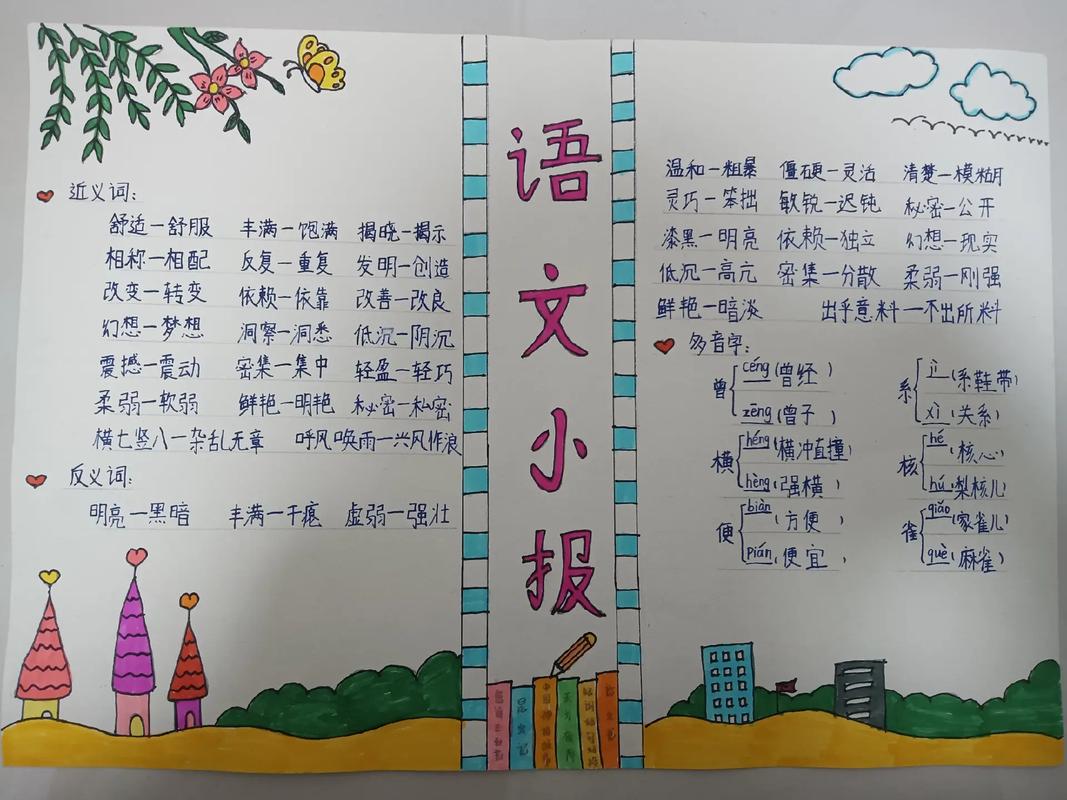 近义词:
舒适—舒服 丰满—饱满 揭晓—揭示
相称—相配 反复—重复 发明—创造
改变—转变 依赖—依靠 改善—改良
幻想—梦想 洞察—洞悉 低沉—阴沉
震撼—震动 密集—集中 轻盈—轻巧
柔弱—软弱 鲜艳—明艳 秘密—私密
横七竖八—杂乱无章 呼风唤雨—兴风作浪
反义词:
明亮—黑暗 丰满—干瘪 虚弱—强壮
语
文
小
报
温和—粗暴 僵硬—灵活 清楚—模糊
灵巧—笨拙 敏锐—迟钝 秘密—公开
漆黑—明亮 依赖—独立 幻想—现实
低沉—高亢 密集—分散 柔弱—刚强
鲜艳—暗淡 出乎意料—不出所料
多音字:
曾 céng (曾经) zēng (曾子)
系 jì (系鞋带) xì (关系)
横 héng (横冲直撞) hèng (强横)
核 hé (核心) hú (梨核儿)
便 biàn (方便) pián (便宜)
雀 qiǎo (家雀儿) què (麻雀)